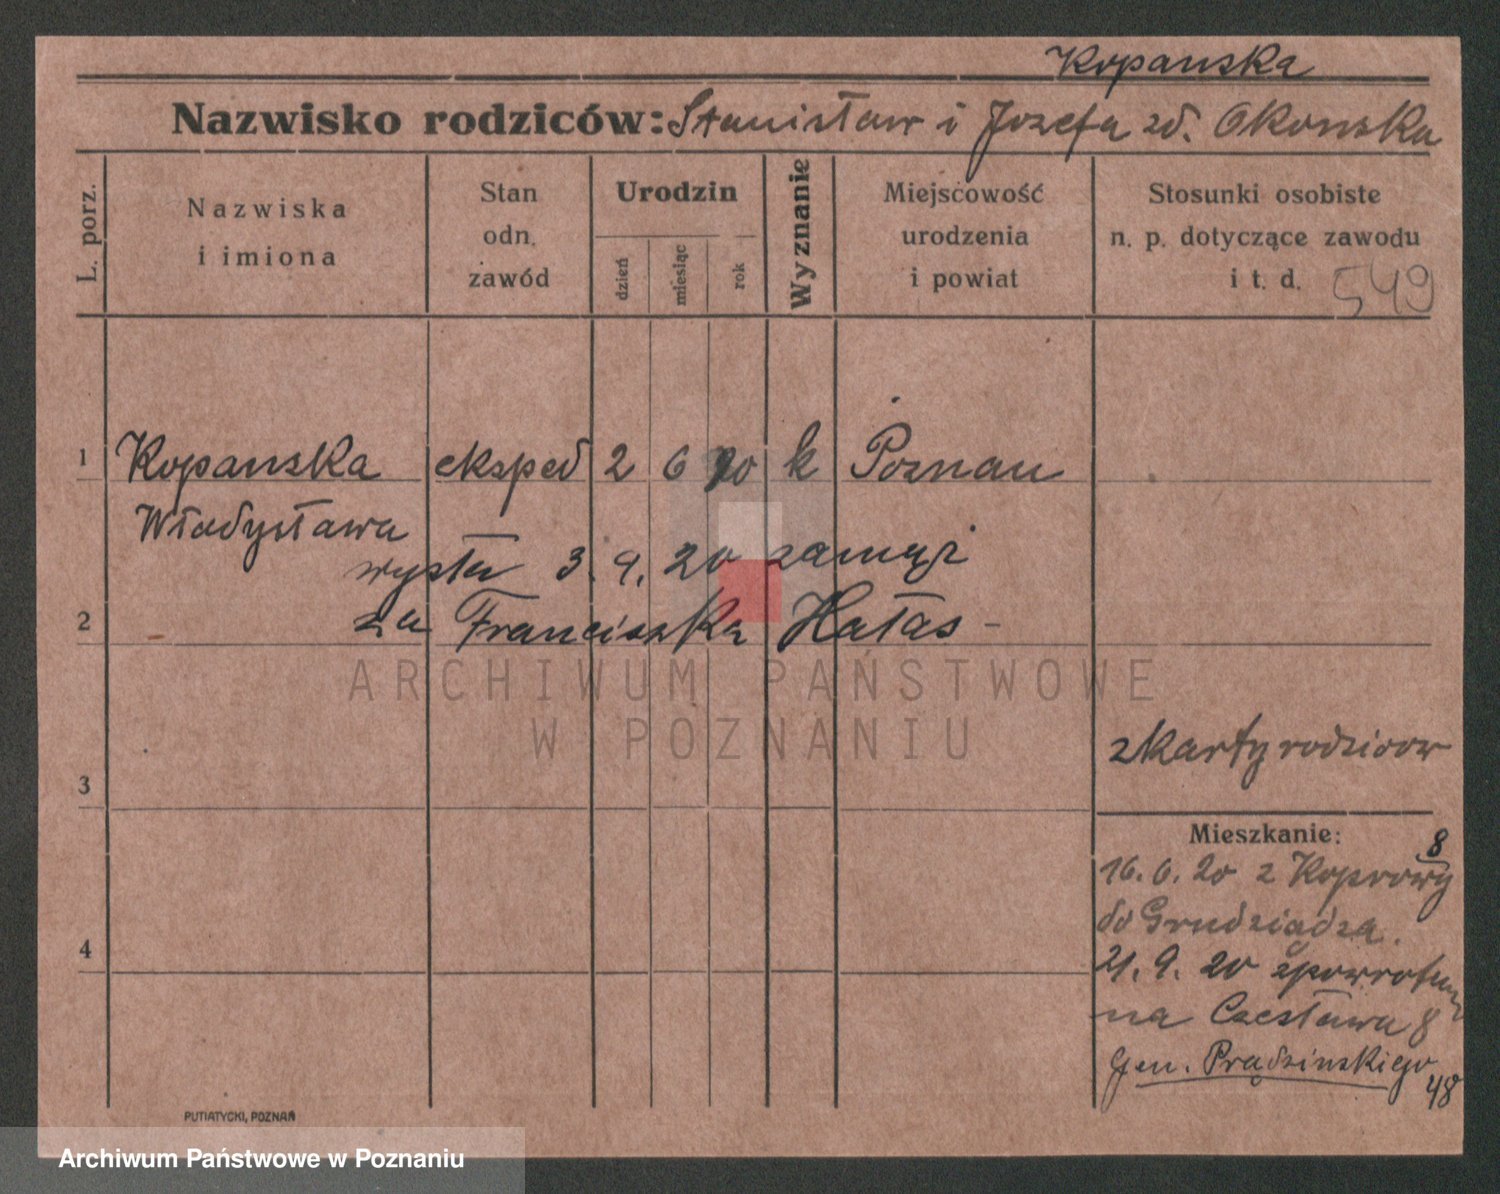 Kopanska
Nazwisko rodziców: Stanisław i Jozefa zd. Okonska
L. porz.
Nazwiska
i imiona
Stan
odn.
zawód
Urodzin
dzień
miesiąc
rok
Wyznanie
Miejscowość
urodzenia
i powiat
Stosunki osobiste
n. p. dotyczące zawodu
i t. d.
549
1 Kopanska eksped 2 6 k Poznan
Władysława
3. 9. 20 zamąż
2 za Franciszka Hałas -
ARCHIWUM PAŃSTWOWE
W POZNANIU
z karty rodzicow
3
Mieszkanie:
8
16. 6. 20 z Koprowy
do Grudziądza.
4
21. 9. 20 zpowrotem
na Czesława 8
Gen. Prądzinskiego
48
PUTIATYCKI, POZNAŃ
Archiwum Państwowe w Poznaniu